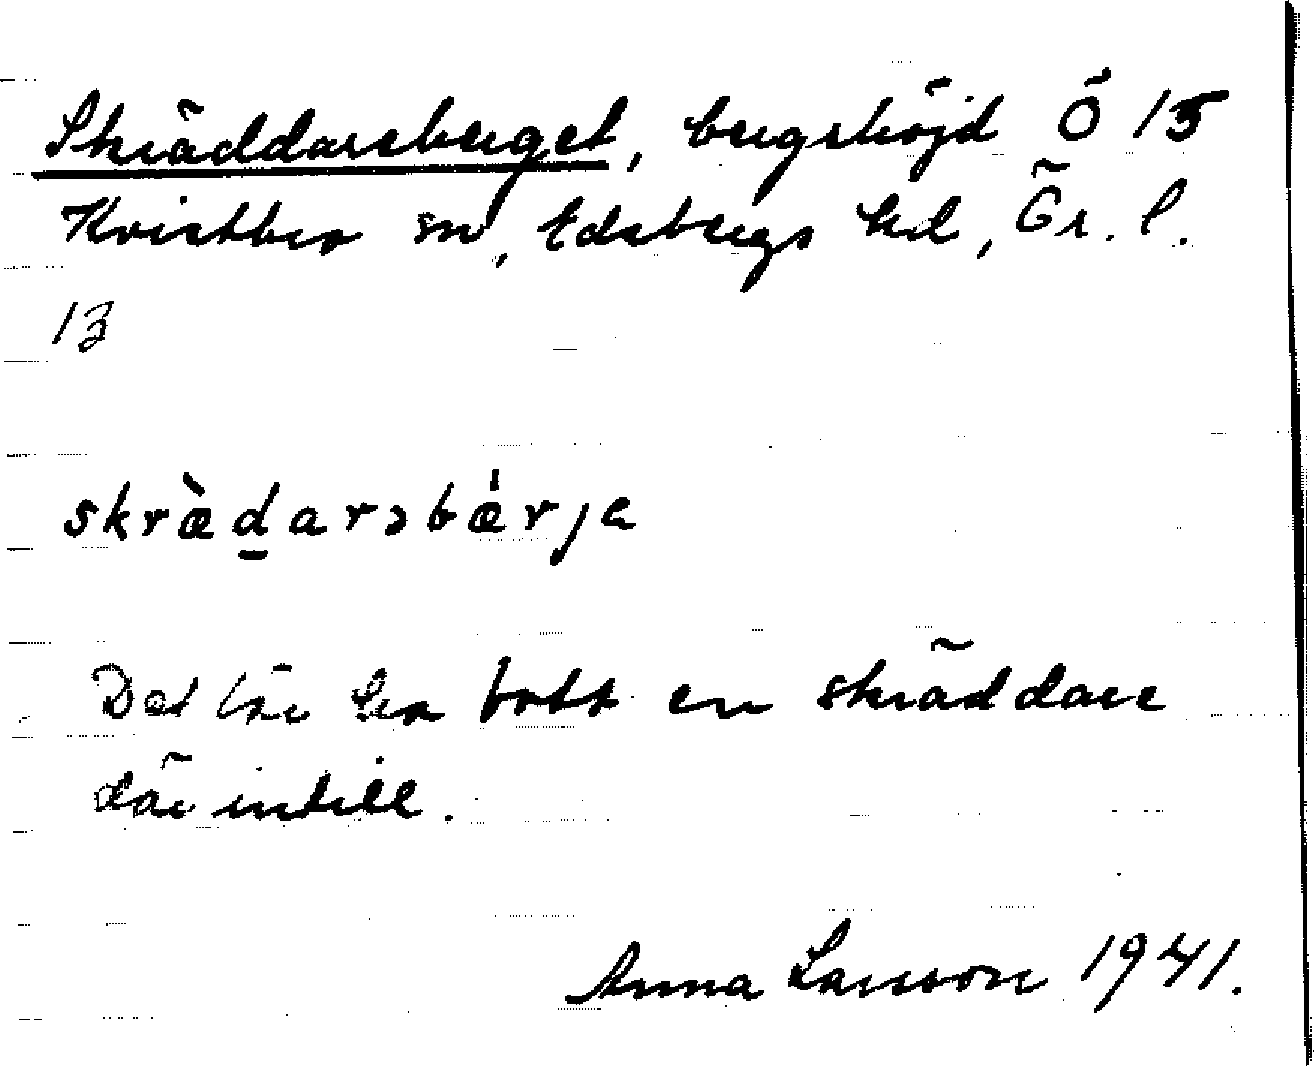 Skräddareberget, bergshöjd Ö 15
Kvistbro sn, Edsbergs hd, Ör. l.
13
skràd̲arsbǽrja
Det lär ha bott en skräddare
där intill.
Anna Larsson 1941.